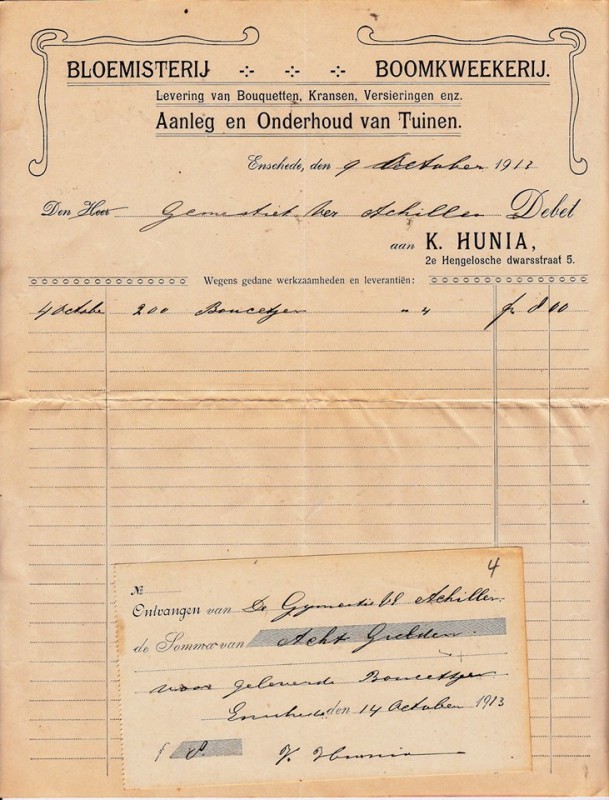 BLOEMISTERIJ BOOMKWEEKERIJ.
Levering van Bouquetten, Kransen, Versieringen enz.
Aanleg en Onderhoud van Tuinen.
Enschede, den 9 October 1913
Den Heer Achilles Debet
aan K. HUNIA,
2e Hengelosche dwarsstraat 5.
Wegens gedane werkzaamheden en leverantiën:
4 Octobe 200 Boucetjes " 4 f 8 00
4
No
Ontvangen van De Achilles
de Somma van Acht Gulden
voor geleverde Boucetjes
Enschede den 14 October 1913
f 8. K. Hunia